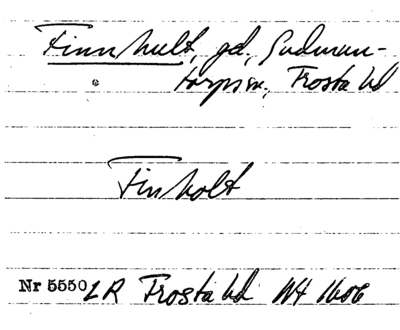 Finnhult, gd, Gudmun-
torps sn, Frosta hd
Finholt
Nr 5550 LR Frosta hd Nt 1606